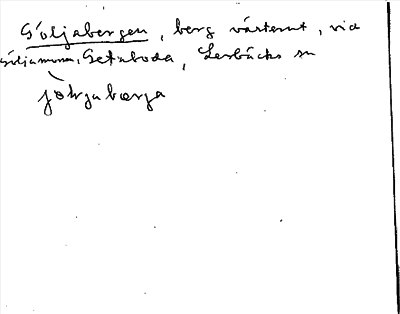 Göljabergen, berg västerut, vid
Göljamman, Getaboda, Lerbäcks sn
jöḷjabærja